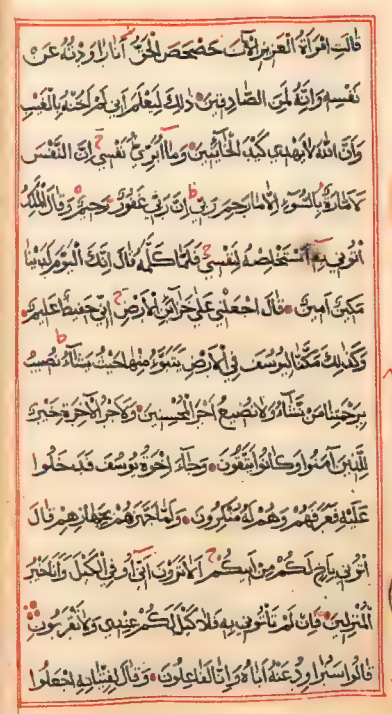 قالت امرأة العزيز الآن حصحص الحق أنا راودته عن
نفسه وإنه لمن الصادقين ذلك ليعلم أني لم أخنه بالغيب
وأن الله لا يهدي كيد الخائنين وما أبرئ نفسي إن النفس
لأمارة بالسوء إلا ما رحم ربي إن ربي غفور رحيم وقال الملك
ائتوني به أستخلصه لنفسي فلما كلمه قال إنك اليوم لدينا
مكين أمين قال اجعلني على خزائن الأرض إني حفيظ عليم
وكذلك مكنا ليوسف في الأرض يتبوء منها حيث يشاء نصيب
برحمتنا من نشاء ولا نضيع أجر المحسنين ولأجر الآخرة خير
للذين آمنوا وكانوا يتقون وجاء إخوة يوسف فدخلوا
عليه فعرفهم وهم له منكرون ولما جهزهم بجهازهم قال
ائتوني بأخ لكم من أبيكم ألا ترون أني أوفي الكيل وأنا خير
المنزلين فإن لم تأتوني به فلا كيل لكم عندي ولا تقربون
قالوا سنراود عنه أباه وإنا لفاعلون وقال لفتيانه اجعلوا